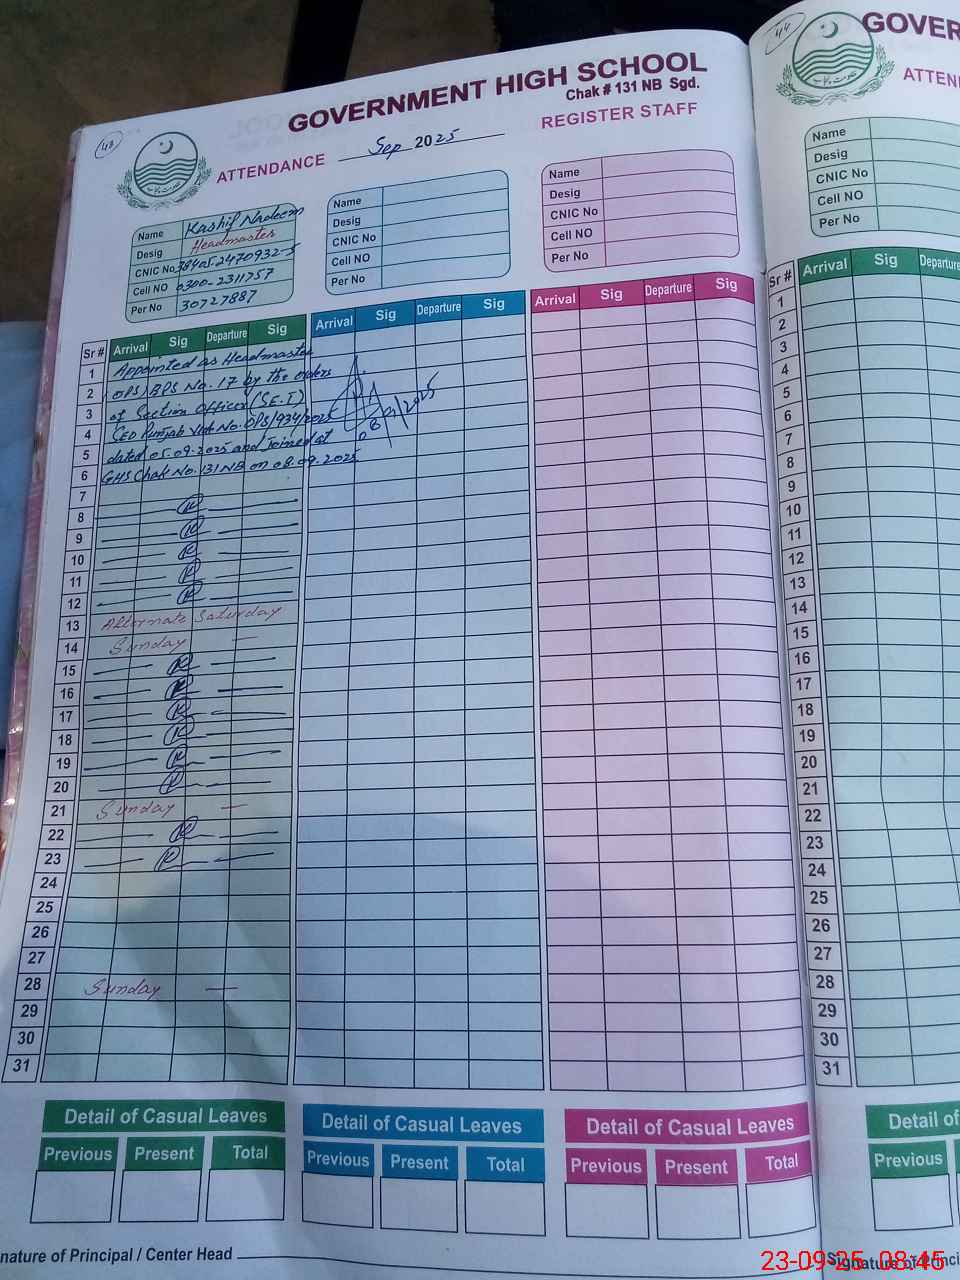 43
GOVERNMENT HIGH SCHOOL
Chak # 131 NB Sgd.
ATTENDANCE Sep 2025 REGISTER STAFF
Name Kashif Nadeem
Desig Headmaster
CNIC No 38405-2470932-5
Cell NO 0300-2311757
Per No 30727887
Name
Desig
CNIC No
Cell NO
Per No
Name
Desig
CNIC No
Cell NO
Per No
Sr # Arrival Sig Departure Sig Arrival Sig Departure Sig Arrival Sig Departure Sig
1 Appointed as Headmaster
2 OPS/BPS No. 17 by the orders
3 of Section Officer (SE.I)
4 Punjab No. OPS/934/2025
5 dated 05.09.2025 and Joined at
6 GHS Chak No. 131 NB on 08.09.2025
7
8
9
10
11
12
13 Alternate Saturday
14 Sunday —
15
16
17
18
19
20
21 Sunday —
22
23
24
25
26
27
28 Sunday —
29
30
31
Detail of Casual Leaves Detail of Casual Leaves Detail of Casual Leaves
Previous Present Total Previous Present Total Previous Present Total
nature of Principal / Center Head
44
GOVER
ATTEN
Name
Desig
CNIC No
Cell NO
Per No
Sr # Arrival Sig Departure
1
2
3
4
5
6
7
8
9
10
11
12
13
14
15
16
17
18
19
20
21
22
23
24
25
26
27
28
29
30
31
Detail of
Previous
Signature of Princi
23-09-25 08:45